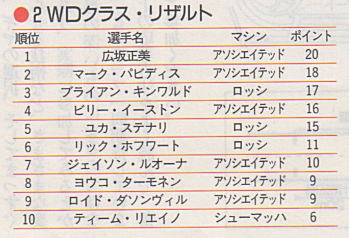 ●2WDクラス・リザルト
順位 選手名 マシン ポイント
1 広坂正美 アソシエイテッド 20
2 マーク・パビディス アソシエイテッド 18
3 ブライアン・キンワルド ロッシ 17
4 ビリー・イーストン アソシエイテッド 16
5 ユカ・ステナリ ロッシ 15
6 リック・ホフワート ロッシ 11
7 ジェイソン・ルオーナ アソシエイテッド 10
8 ヨウコ・ターモネン アソシエイテッド 9
9 ロイド・ダソンヴィル アソシエイテッド 9
10 ティーム・リエイノ シューマッハ 6